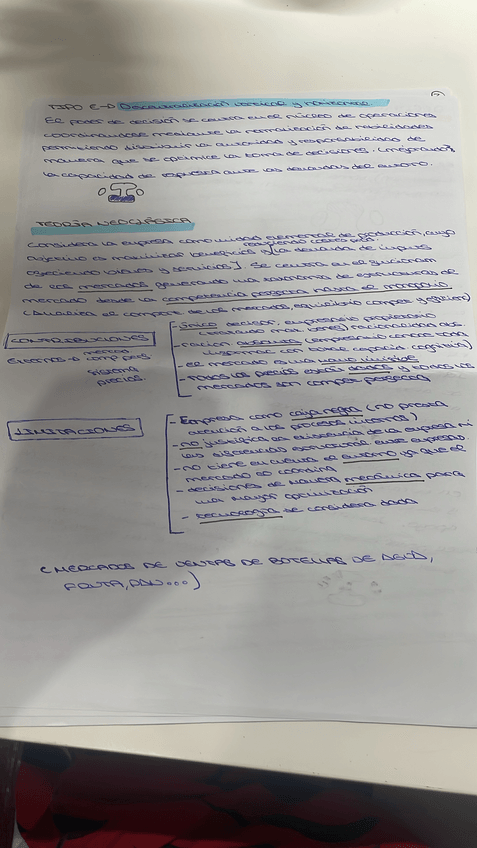 TIPO E → Descentralización vertical y horizontal
El poder de decisión se centra en el núcleo de operaciones
coordinándose mediante la normalización de habilidades
permitiendo distribuir la autoridad y responsabilidad de
manera que se optimice la toma de decisiones. (mejorando
la capacidad de respuesta ante las demandas del entorno.
TEORÍA NEOCLÁSICA
Considera la empresa como unidad elemental de producción, cuyo
reduciendo costes prod.
objetivo es maximizar beneficios y [la demanda de inputs
ofreciendo bienes y servicios]. Se centra en el
de los mercados generando una taxonomía de estructuras de
mercado desde la competencia perfecta hasta el monopolio
(Analiza el comport de los mercados, equilibrio compet y)
CONTRIBUCIONES
mercado
sistema
precios.
- Único decisor: empresario propietario
- racion absoluta (empresario conoce toda
- el mercado es una mano invisible
- todos los precios están dados y todos los
mercados son compet perfecta
LIMITACIONES
- Empresa como caja negra (no presta
atención a los procesos internos)
- no justifica la existencia de la empresa ni
las diferencias entre empresas.
- no tiene en cuenta el entorno ya que el
mercado lo coordina
- decisiones de manera mecánica para
una mayor optimización
- tecnología se considera dada
(MERCADOS DE VENTAS DE BOTELLAS DE AGUA,
FRUTA, PAN...)